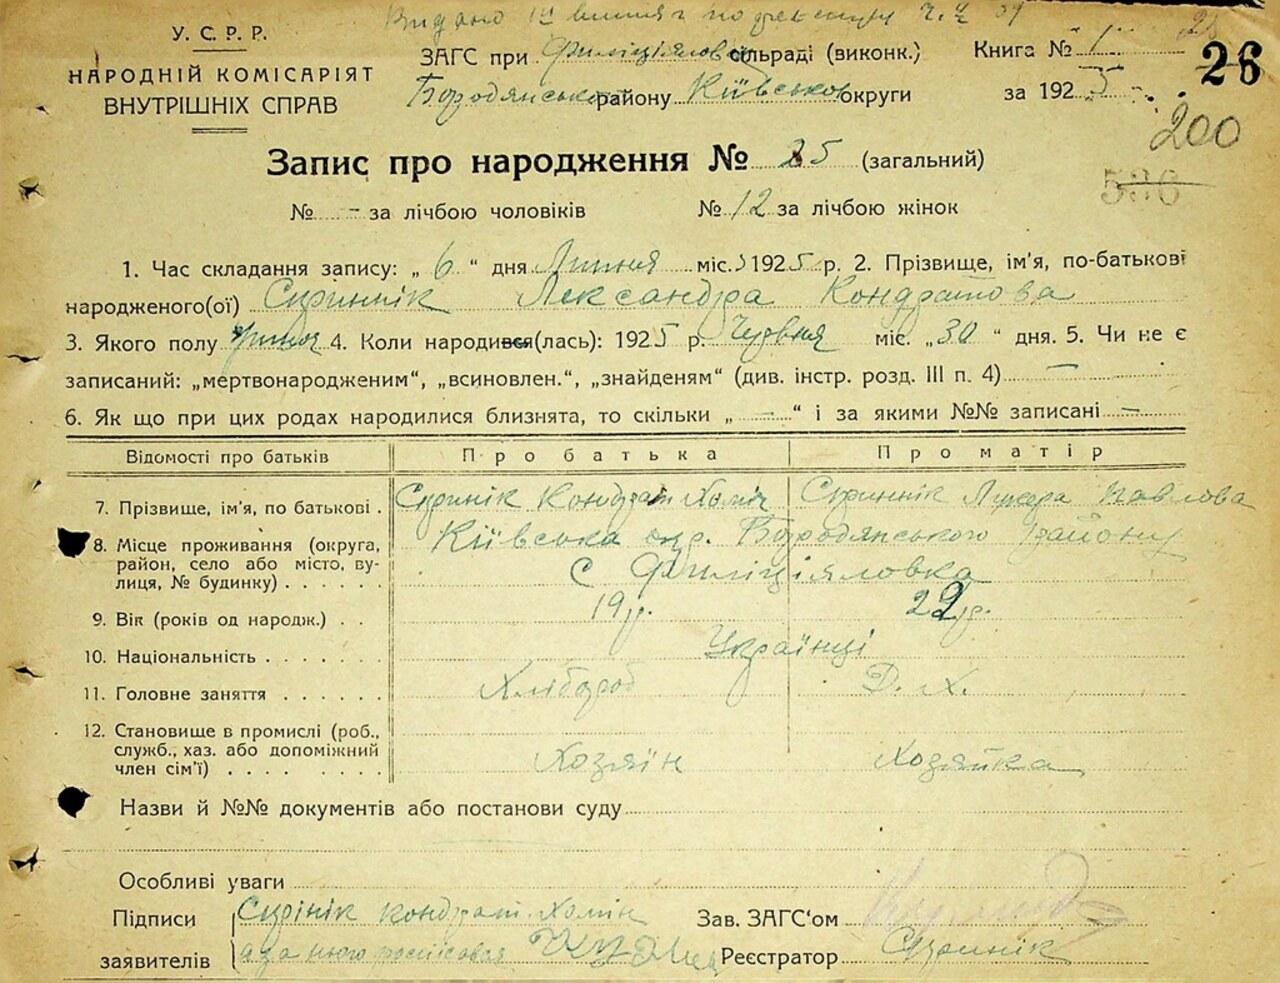 Видано
У. С. Р. Р.
НАРОДНІЙ КОМІСАРІЯТ
ВНУТРІШНІХ СПРАВ
ЗАГС при Филиціяловс сільраді (виконк.)
Бородянсько району Київсько округи
Книга № 1
за 1925
26
200
Запис про народження № 25 (загальний)
№ – за лічбою чоловіків № 12 за лічбою жінок
1. Час складання запису: „6“ дня Липня міс. 1925 р. 2. Прізвище, ім'я, по-батькові
народженого(ої) Скриннік Лександра Кондратова
3. Якого полу 4. Коли народився(лась): 1925 р. Червня міс. „30“ дня. 5. Чи не є
записаний: „мертвонародженим“, „всиновлен.“, „знайденям“ (див. інстр. розд. III п. 4) —
6. Як що при цих родах народилися близнята, то скільки „—“ і за якими №№ записані —
Відомості про батьків Про батька Про матір
7. Прізвище, ім'я, по батькові . Скринік Кондрат Хоміч Скриннік Лукера Павлова
8. Місце проживання (округа, Київська окр. Бородянського району
район, село або місто, ву-
лиця, № будинку) . . . . . . с Филиціяловка
9. Вік (років од народж.) . . 19 р. 22 р.
10. Національність . . . . . . . Українці
11. Головне заняття . . . . . . Хлібороб Д. Х.
12. Становище в промислі (роб.,
служб., хаз. або допоміжний
член сім'ї) . . . . . . . . . Хозяїн Хозяйка
Назви й №№ документів або постанови суду
Особливі уваги
Підписи Скрінік кондрат Хомін
заявителів а за нього росписовся
Зав. ЗАГС'ом
Реєстратор Скринік